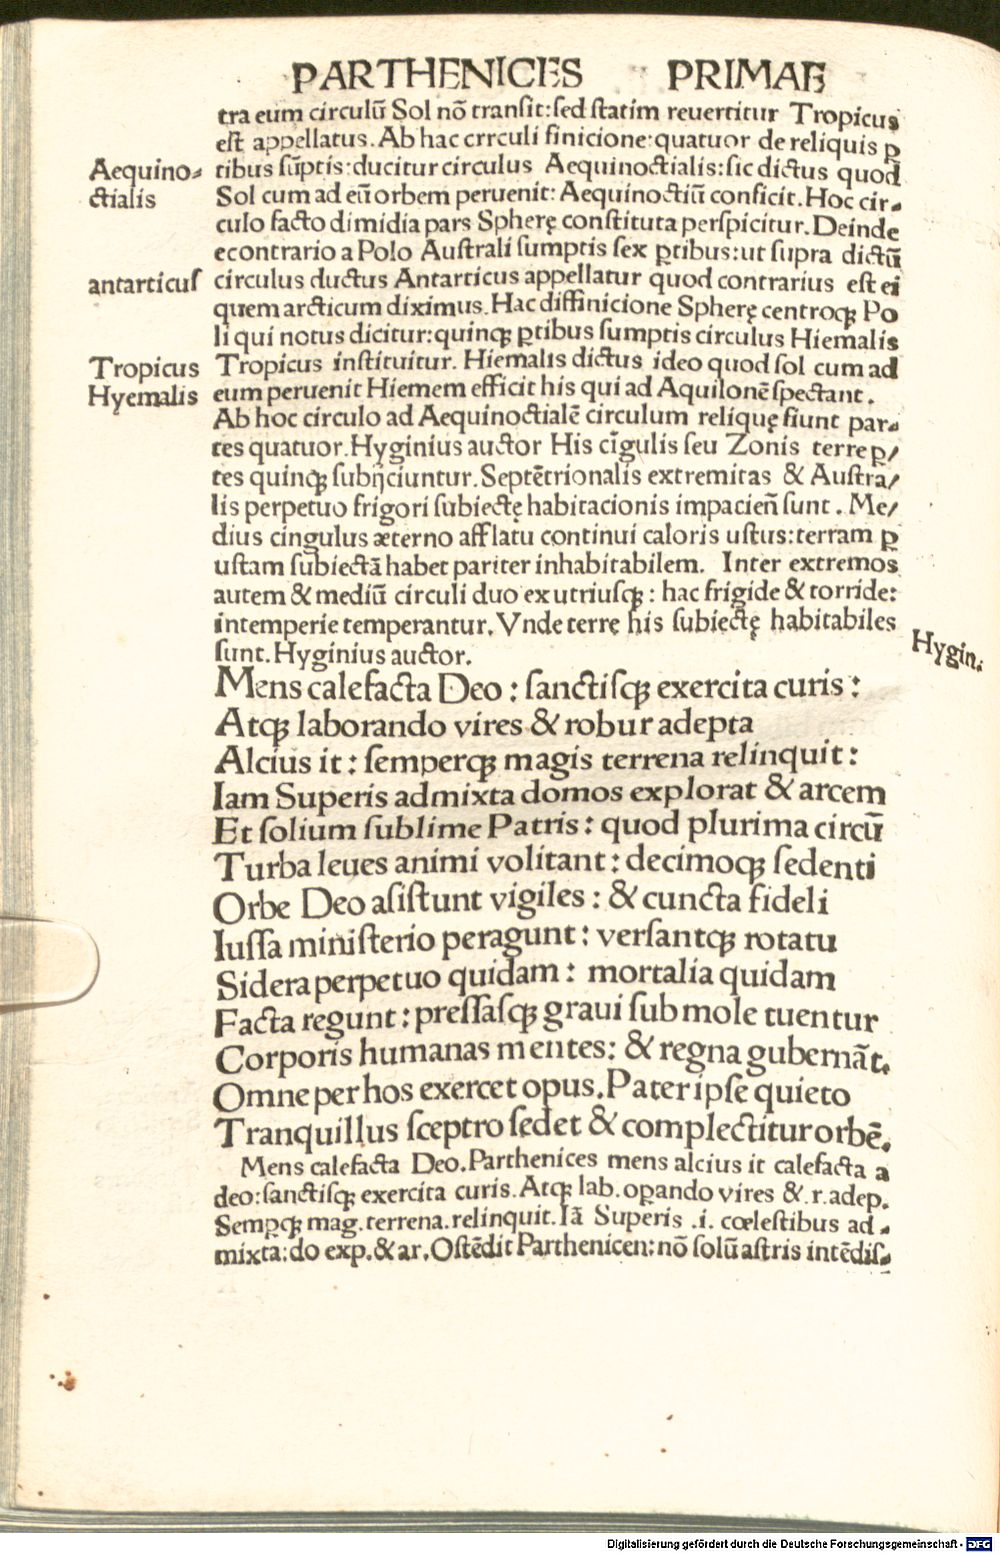 PARTHENICES PRIMAE
tra eum circulū Sol nō transit:sed statim reuertitur Tropicus
est appellatus. Ab hac crrculi finicione:quatuor de reliquis ꝑ
Aequino-
ctialis
tibus sūptis:ducitur circulus Aequinoctialis:sic dictus quod
Sol cum ad eū orbem peruenit: Aequinoctiū conficit. Hoc cir-
culo facto dimidia pars Spherę constituta perspicitur. Deinde
econtrario a Polo Australi sumptis sex ꝑtibus:ut supra dictū
antarticus
circulus ductus Antarticus appellatur quod contrarius est ei
quem arcticum diximus. Hac diffinicione Spherę centroqꝫ Po
li qui notus dicitur:quinqꝫ ꝑtibus sumptis circulus Hiemalis
Tropicus
Hyemalis
Tropicus instituitur. Hiemalis dictus ideo quod sol cum ad
eum peruenit Hiemem efficit his qui ad Aquilonē spectant.
Ab hoc circulo ad Aequinoctialē circulum reliquę fiunt par-
tes quatuor. Hyginius auctor His cīgulis seu Zonis terre ꝑ/
tes quinqꝫ subijciuntur. Septētrionalis extremitas & Austra/
lis perpetuo frigori subiectę habitacionis impacien̄ sunt. Me/
dius cingulus æterno afflatu continui caloris ustus:terram ꝑ
ustam subiectā habet pariter inhabitabilem. Inter extremos
autem & mediū circuli duo ex utriusqꝫ: hac frigide & torride:
intemperie temperantur. Vnde terrę his subiectę habitabiles
sunt. Hyginius auctor.
Hygin.
Mens calefacta Deo: sanctisqꝫ exercita curis:
Atqꝫ laborando vires & robur adepta
Alcius it: semperqꝫ magis terrena relinquit:
Iam Superis admixta domos explorat & arcem
Et solium sublime Patris: quod plurima circū
Turba leues animi volitant: decimoqꝫ sedenti
Orbe Deo asistunt vigiles: & cuncta fideli
Iussa ministerio peragunt: versantqꝫ rotatu
Sidera perpetuo quidam: mortalia quidam
Facta regunt: pressasqꝫ graui sub mole tuentur
Corporis humanas mentes: & regna gubernāt.
Omne per hos exercet opus. Pater ipse quieto
Tranquillus sceptro sedet & complectitur orbē.
Mens calefacta Deo. Parthenices mens alcius it calefacta a
deo:sanctisqꝫ exercita curis. Atqꝫ lab. oꝑando vires & .r. adep.
Semꝑqꝫ mag. terrena. relinquit. Iā Superis .i. cœlestibus ad-
mixta:do exp. & ar. Ostēdit Parthenicen:nō solū astris intēdis-
Digitalisierung gefördert durch die Deutsche Forschungsgemeinschaft - DFG